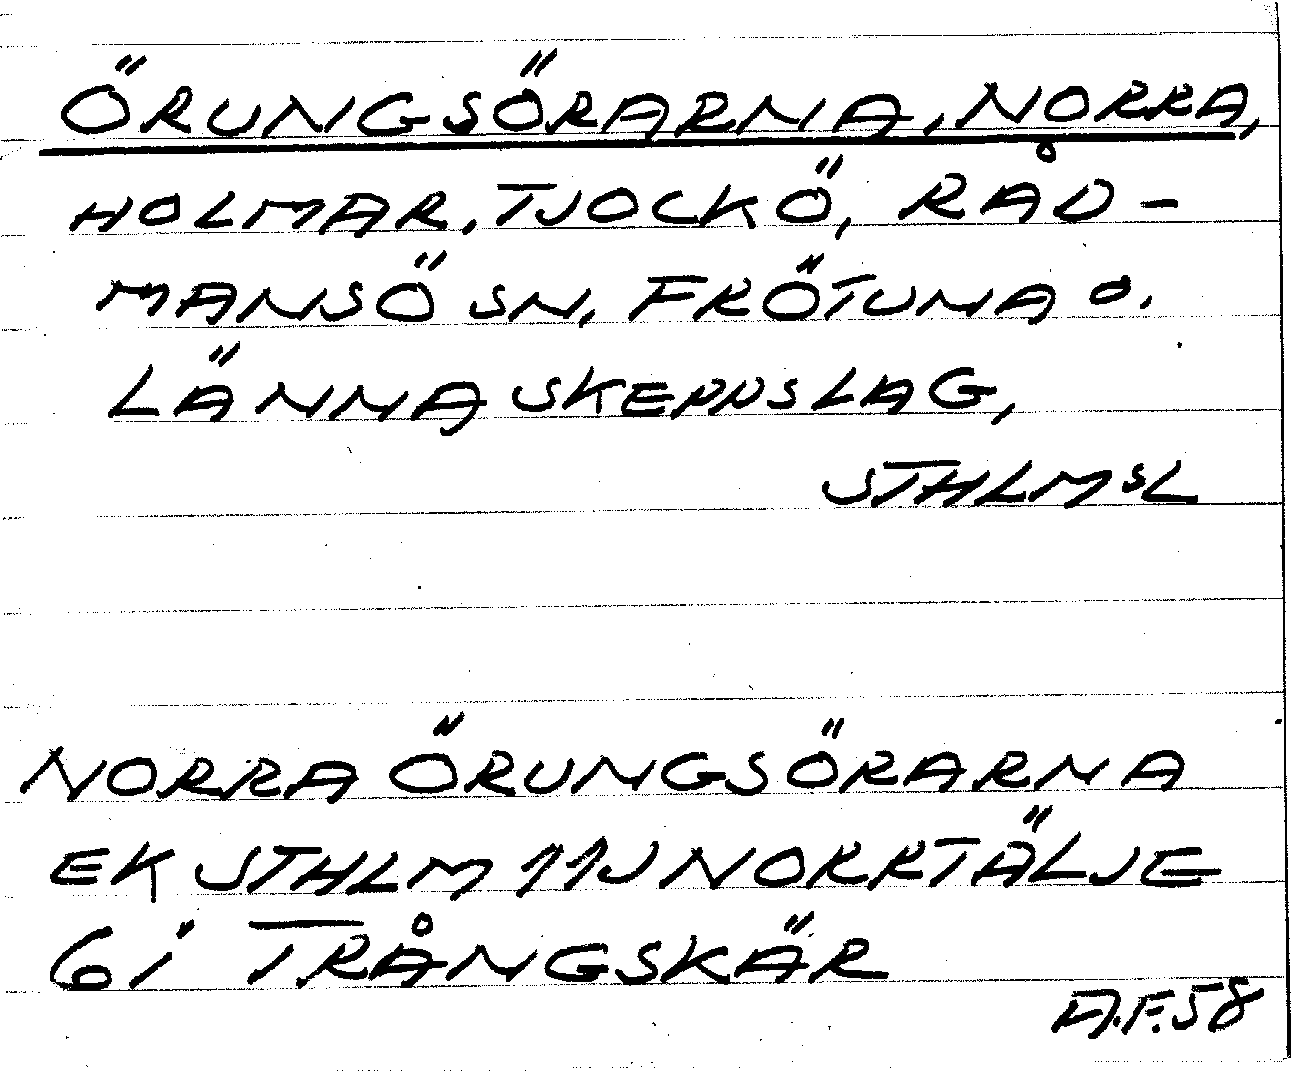 ÖRUNGSÖRARNA, NORRA,
HOLMAR, TJOCKÖ, RÅD-
MANSÖ SN, FRÖTUNA O.
LÄNNA SKEPPSLAG,
STHLMSL
NORRA ÖRUNGSÖRARNA
EK STHLM 11J NORRTÄLJE
6i TRÅNGSKÄR
A.F.58